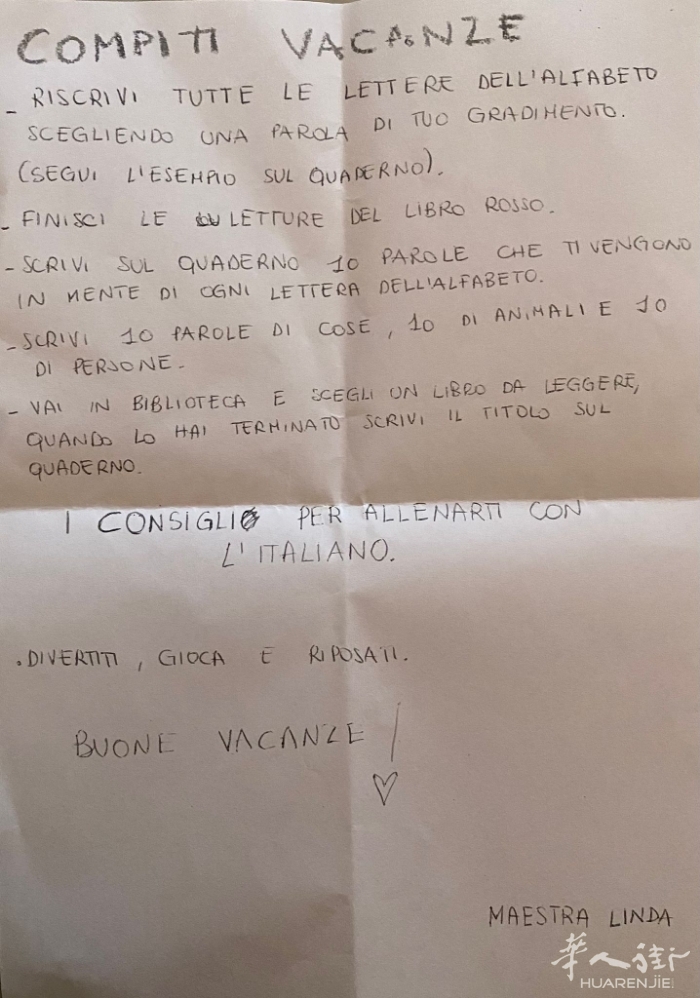 COMPITI VACANZE
- RISCRIVI TUTTE LE LETTERE DELL'ALFABETO
SCEGLIENDO UNA PAROLA DI TUO GRADIMENTO.
(SEGUI L'ESEMPIO SUL QUADERNO).
- FINISCI LE LETTURE DEL LIBRO ROSSO.
- SCRIVI SUL QUADERNO 10 PAROLE CHE TI VENGONO
IN MENTE DI OGNI LETTERA DELL'ALFABETO.
- SCRIVI 10 PAROLE DI COSE, 10 DI ANIMALI E 10
DI PERSONE.
- VAI IN BIBLIOTECA E SCEGLI UN LIBRO DA LEGGERE,
QUANDO LO HAI TERMINATO SCRIVI IL TITOLO SUL
QUADERNO.
I CONSIGLI PER ALLENARTI CON
L'ITALIANO.
. DIVERTITI, GIOCA E RIPOSATI.
BUONE VACANZE!
♡
MAESTRA LINDA
华人街
HUARENJIE